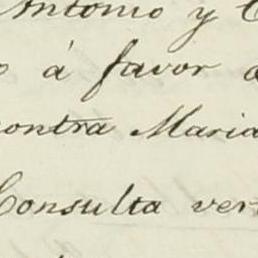 Antonio y
á favor
contra Maria
Consulta ver